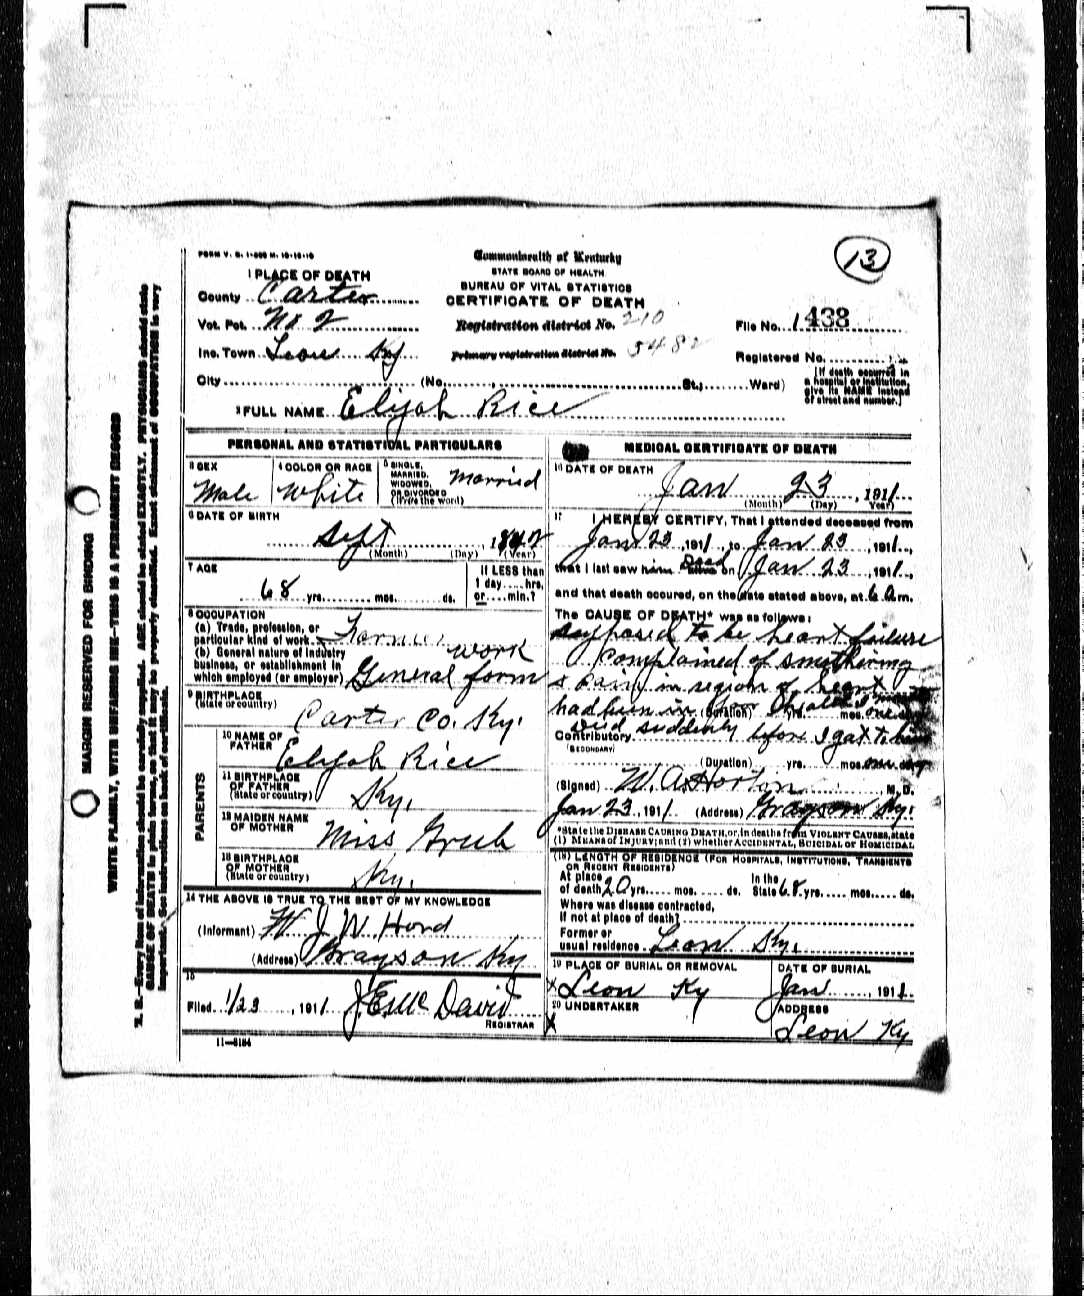 13
FORM V. S. 1-
Commonwealth of Kentucky
STATE BOARD OF HEALTH
BUREAU OF VITAL STATISTICS
CERTIFICATE OF DEATH
1 PLACE OF DEATH
County Carter
Vot. Pct. No 2
Registration district No. 210
File No. 1438
Inc. Town Leon Ky
Primary registration district No. 5482
Registered No.
City (No. , St.; Ward)
[If death occurred in
a hospital or institution,
give its NAME instead
of street and number.]
2 FULL NAME Elijah Rice
PERSONAL AND STATISTICAL PARTICULARS
3 SEX
Male
4 COLOR OR RACE
White
5 SINGLE,
MARRIED,
WIDOWED,
OR DIVORCED
(Write the word)
Married
6 DATE OF BIRTH
Sept 1842
(Month) (Day) (Year)
7 AGE
68 yrs. mos. ds.
If LESS than
1 day hrs.
or min.?
8 OCCUPATION
(a) Trade, profession, or
particular kind of work Farmer
(b) General nature of industry
business, or establishment in
which employed (or employer) General farm work
9 BIRTHPLACE
(State or country)
Carter Co. Ky.
PARENTS
10 NAME OF
FATHER Elijah Rice
11 BIRTHPLACE
OF FATHER
(State or country) Ky.
12 MAIDEN NAME
OF MOTHER Miss
13 BIRTHPLACE
OF MOTHER
(State or country) Ky.
14 THE ABOVE IS TRUE TO THE BEST OF MY KNOWLEDGE
(Informant) W. J. W. Hord
(Address) Grayson Ky
15
Filed 1/23, 1911 J. E. McDavid
REGISTRAR
11-5184
MEDICAL CERTIFICATE OF DEATH
16 DATE OF DEATH
Jan 23, 1911
(Month) (Day) Year)
17 I HEREBY CERTIFY, That I attended deceased from
Jan 23, 1911, to Jan 23, 1911,
that I last saw him Dead alive on Jan 23, 1911,
and that death occured, on the date stated above, at 6 a m.
The CAUSE OF DEATH* was as follows:
supposed to be heart failure
Complained of smothering
& pain in region of heart
had been in (Duration) yrs. mos. one day
Died suddenly before I got to him
Contributory
(SECONDARY)
(Duration) yrs. mos. one day
(Signed) W. A. Horton, M. D.
Jan 23, 1911 (Address) Grayson Ky.
*State the DISEASE CAUSING DEATH, or, in deaths from VIOLENT CAUSES, state
(1) MEANS OF INJURY; and (2) whether ACCIDENTAL, SUICIDAL or HOMICIDAL
(18) LENGTH OF RESIDENCE (FOR HOSPITALS, INSTITUTIONS, TRANSIENTS
OR RECENT RESIDENTS)
At place
of death 20 yrs. mos. ds.
In the
State 68 yrs. mos. ds.
Where was disease contracted,
if not at place of death?
Former or
usual residence Leon Ky.
19 PLACE OF BURIAL OR REMOVAL
Leon Ky
DATE OF BURIAL
Jan, 1911
20 UNDERTAKER
X
ADDRESS
Leon Ky
MARGIN RESERVED FOR BINDING
WRITE PLAINLY, WITH UNFADING INK—THIS IS A PERMANENT RECORD
N. B.—Every item of information should be carefully supplied. AGE should be stated EXACTLY. PHYSICIANS should state
CAUSE OF DEATH in plain terms, so that it may be properly classified. Exact statement of OCCUPATION is very
important. See instructions on back of certificate.